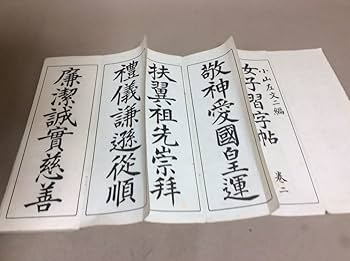 小山左文二編
女子習字帖　卷二
敬神愛國皇運
扶翼祖先崇拜
禮儀謙遜從順
廉潔誠實慈善